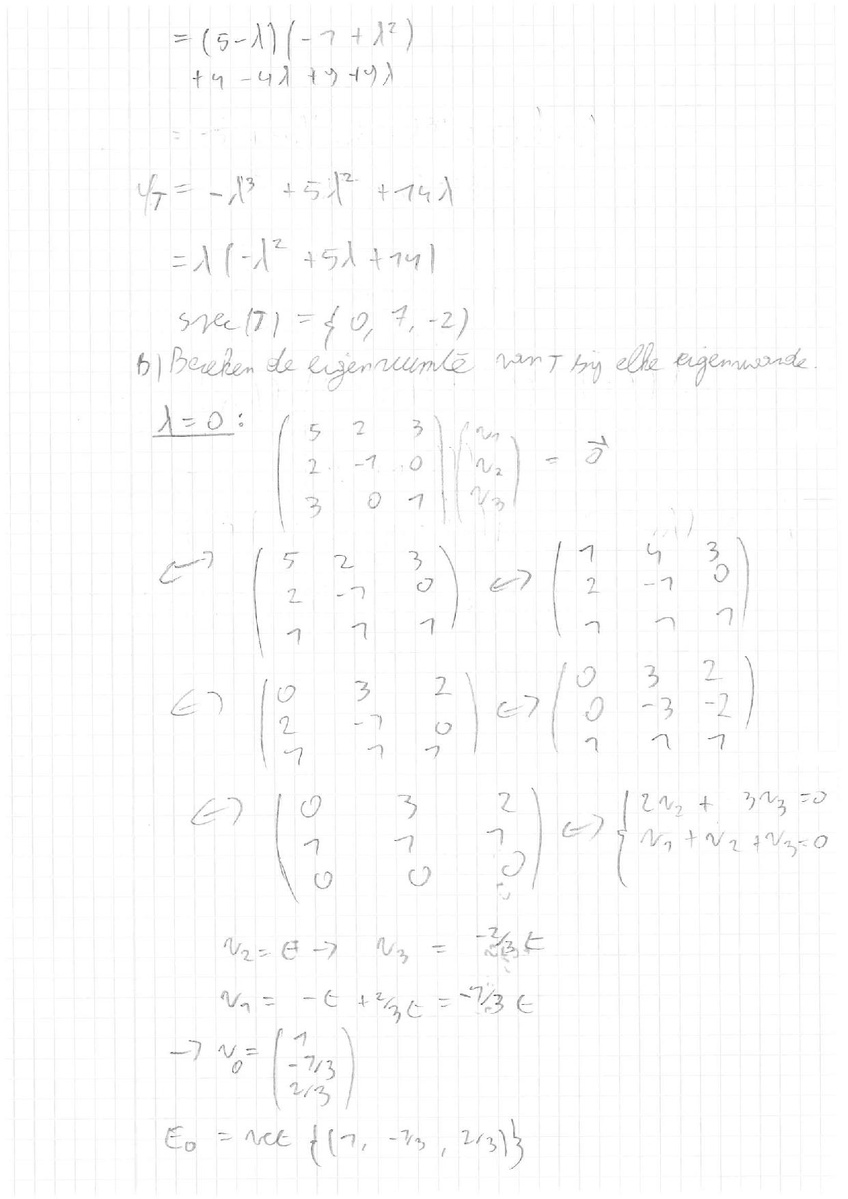 = (5-λ)(-1 + λ²)
+4 -4λ +9 +9λ
φ_T = -λ³ +5λ² +14λ
= λ(-λ² +5λ +14)
spec(T) = {0, 7, -2)
b) Bereken de eigenruimte van T bij elke eigenwaarde.
λ=0:
( 5 2 3 ; 2 -1 0 ; 3 0 1 ) ( v₁ ; v₂ ; v₃ ) = 0⃗
↔ ( 5 2 3 ; 2 -1 0 ; 1 1 1 ) ↔ ( 1 4 3 ; 2 -1 0 ; 1 1 1 )
↔ ( 0 3 2 ; 2 -1 0 ; 1 1 1 ) ↔ ( 0 3 2 ; 0 -3 -2 ; 1 1 1 )
↔ ( 0 3 2 ; 1 1 1 ; 0 0 0 ) ↔ { 2v₂ + 3v₃ = 0 ; v₁ + v₂ + v₃ = 0
v₂ = t → v₃ = -2/3 t
v₁ = -t + 2/3 t = -1/3 t
→ v₀ = ( 1 ; -1/3 ; 2/3 )
E₀ = vct {(1, -1/3, 2/3)}